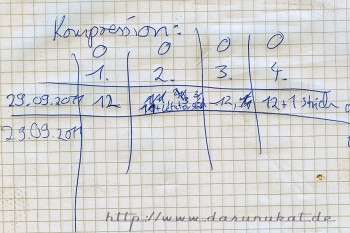 Kompression:
0 0 0 0
1. 2. 3. 4.
29.09.2011 12 12, 12+1 strich
29.09.2011
http://www.darunukat.de